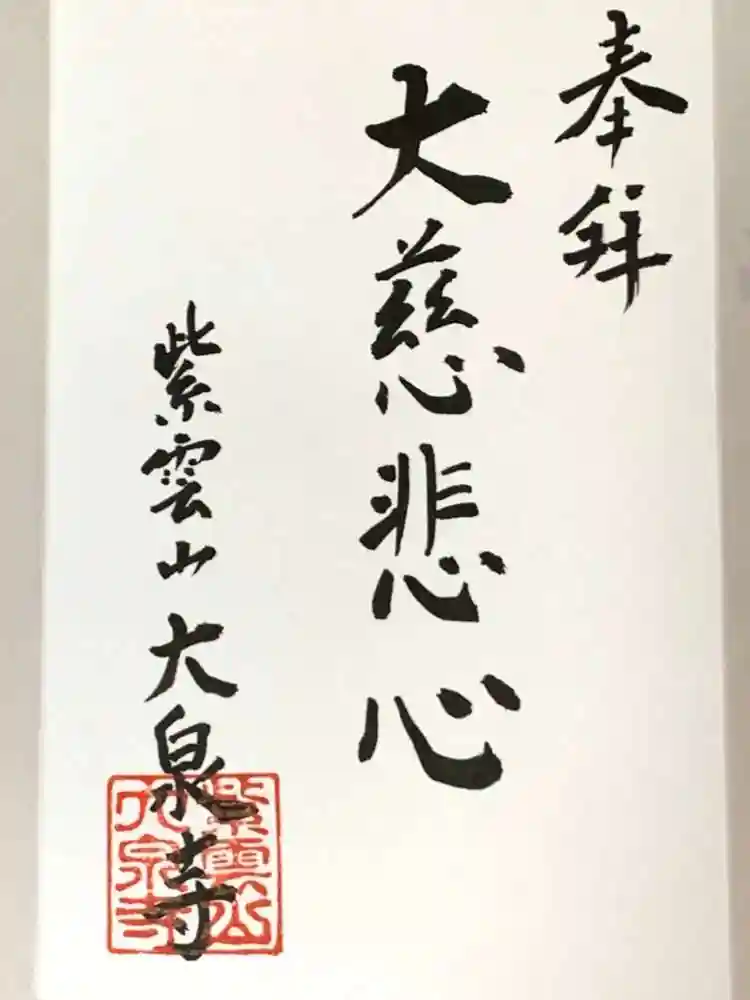 奉拝
大慈悲心
紫雲山大泉寺
紫雲山
大泉寺